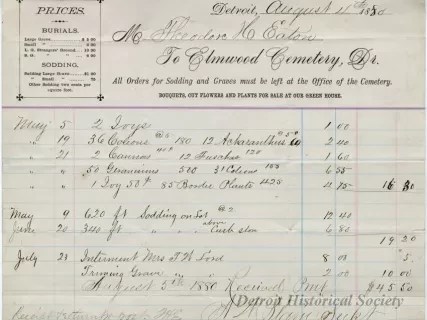 PRICES.
BURIALS.
Large Grave, $ 5 00
Small " 3 00
L. G. Strangers' Ground, 10 00
S. G. " " 5 00
SODDING.
Sodding Large Grave, $1 00
" Small " 75
Other Sodding two cents per square foot.
Detroit, August 4th 1880
M Theodore H Eaton
To Elmwood Cemetery, Dr.
All Orders for Sodding and Graves must be left at the Office of the Cemetery.
BOUQUETS, CUT FLOWERS AND PLANTS FOR SALE AT OUR GREEN HOUSE.
May 5 2 Ivys 1 00
" 19 36 Coleus 180 12 60 2 40
" 21 2 Cannas 12 Fuschas 120 1 60
" " 50 Geraniums 500 31 Coleus 155 6 55
" " 1 Ivy 50 85 Border Plants 425 4 75 16 30
May 9 620 ft Sodding on Lot 12 40
June 20 340 ft " " 6 80
19 20
July 23 Interment Mrs T W Lord 8 00
Grave " " 2 00 10 00
August 5th 1880 Received Pmt $45 50
Detroit Historical Society